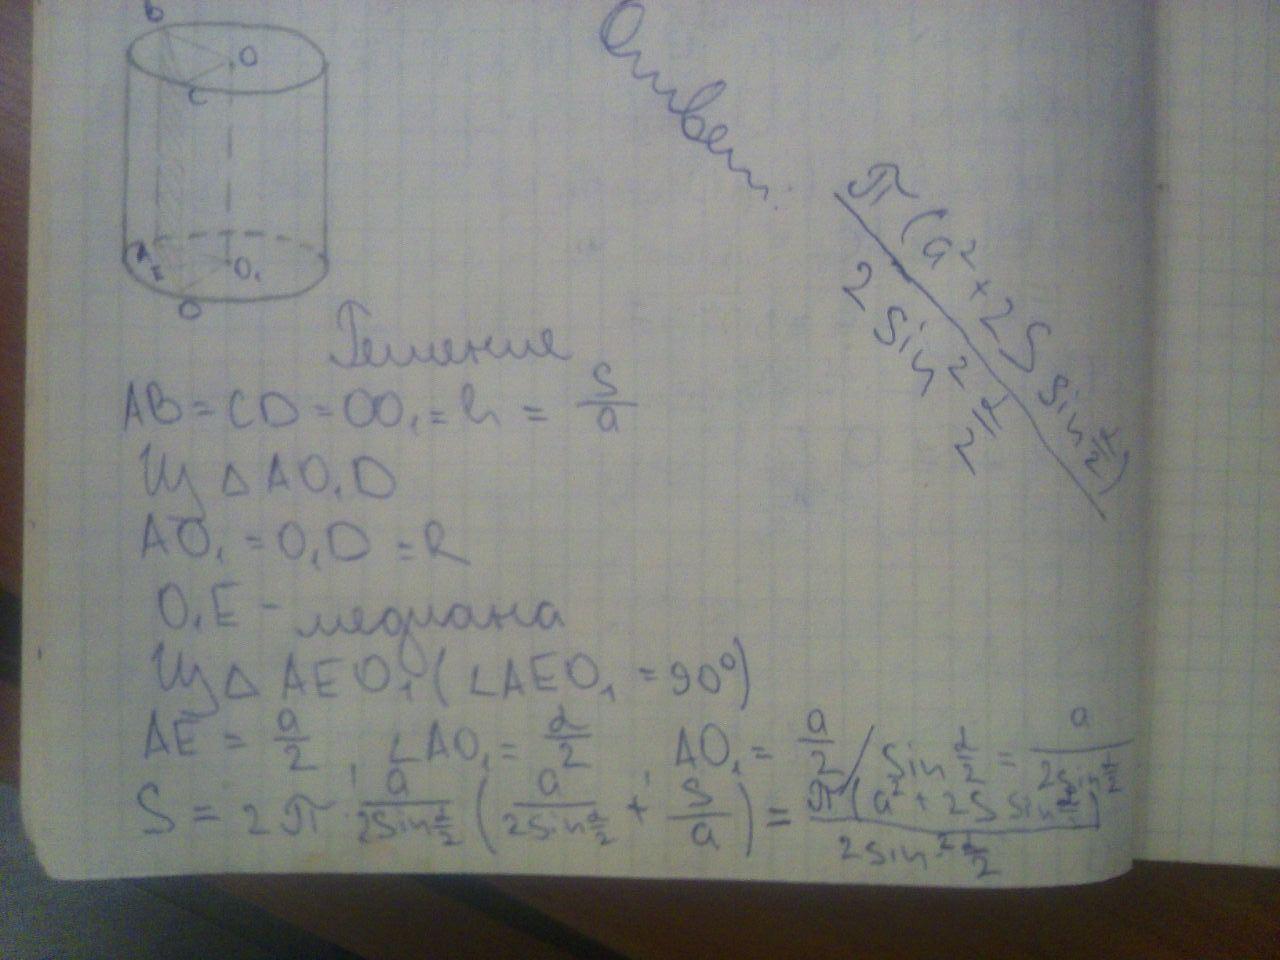 B
O
C
O₁
D
Решение
AB = CD = OO₁ = h = S/a
Из △ AO₁D
AO₁ = O₁D = R
O₁E - медиана
Из △ AEO₁ (∠AEO₁ = 90°)
AE = a/2, ∠AO₁ = α/2, AO₁ = a/2 / sin α/2 = a/(2 sin α/2)
S = 2π · a/(2sin α/2) (a/(2sin α/2) + S/a) = π(a² + 2S sin α/2)/(2 sin² α/2)
Ответ:
π(a² + 2S sin α/2)/(2 sin² α/2)